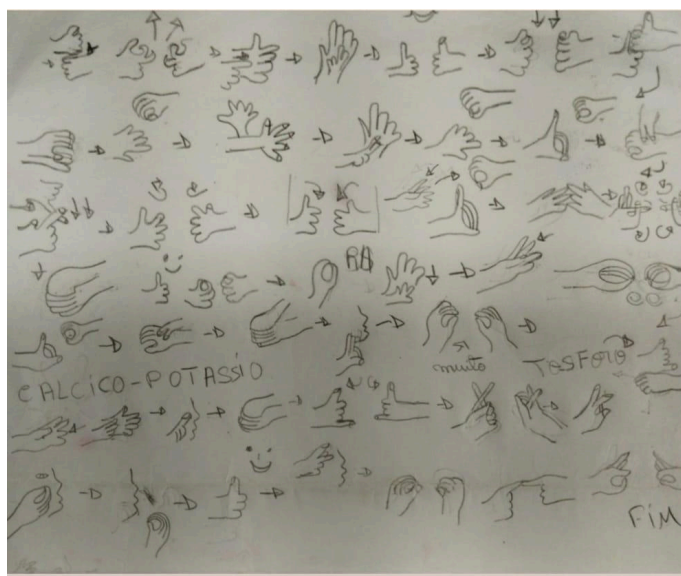 CALCICO-POTASSIO muito TOSFORO
FIM